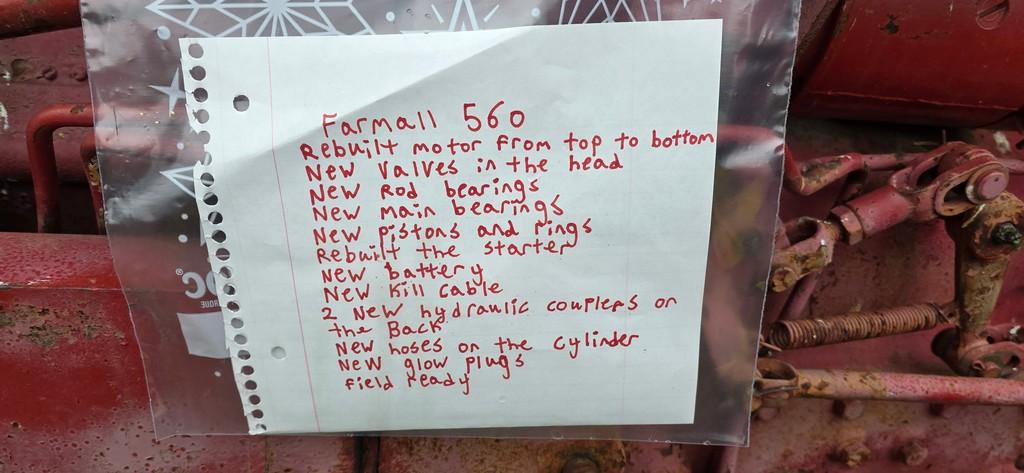 Farmall 560
Rebuilt motor from top to bottom
New Valves in the head
New Rod bearings
New main bearings
New pistons and rings
Rebuilt the starter
New battery
New Kill cable
2 New hydraulic couplers on
the Back
New hoses on the cylinder
New glow plugs
field ready